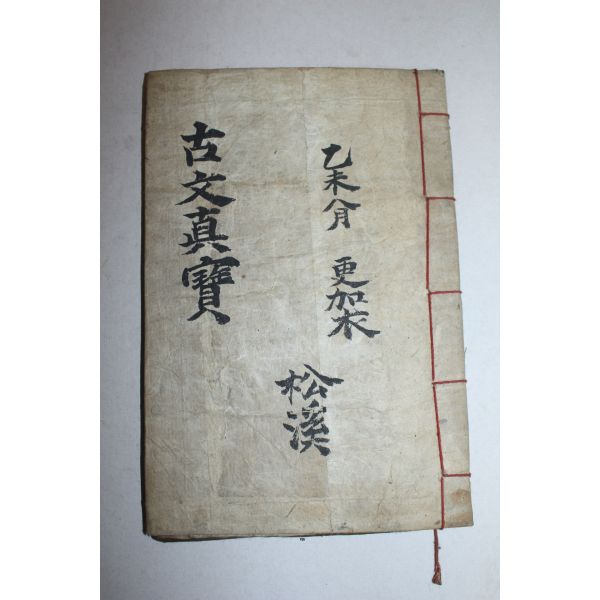 乙未八月 更架
松溪
古文真寶